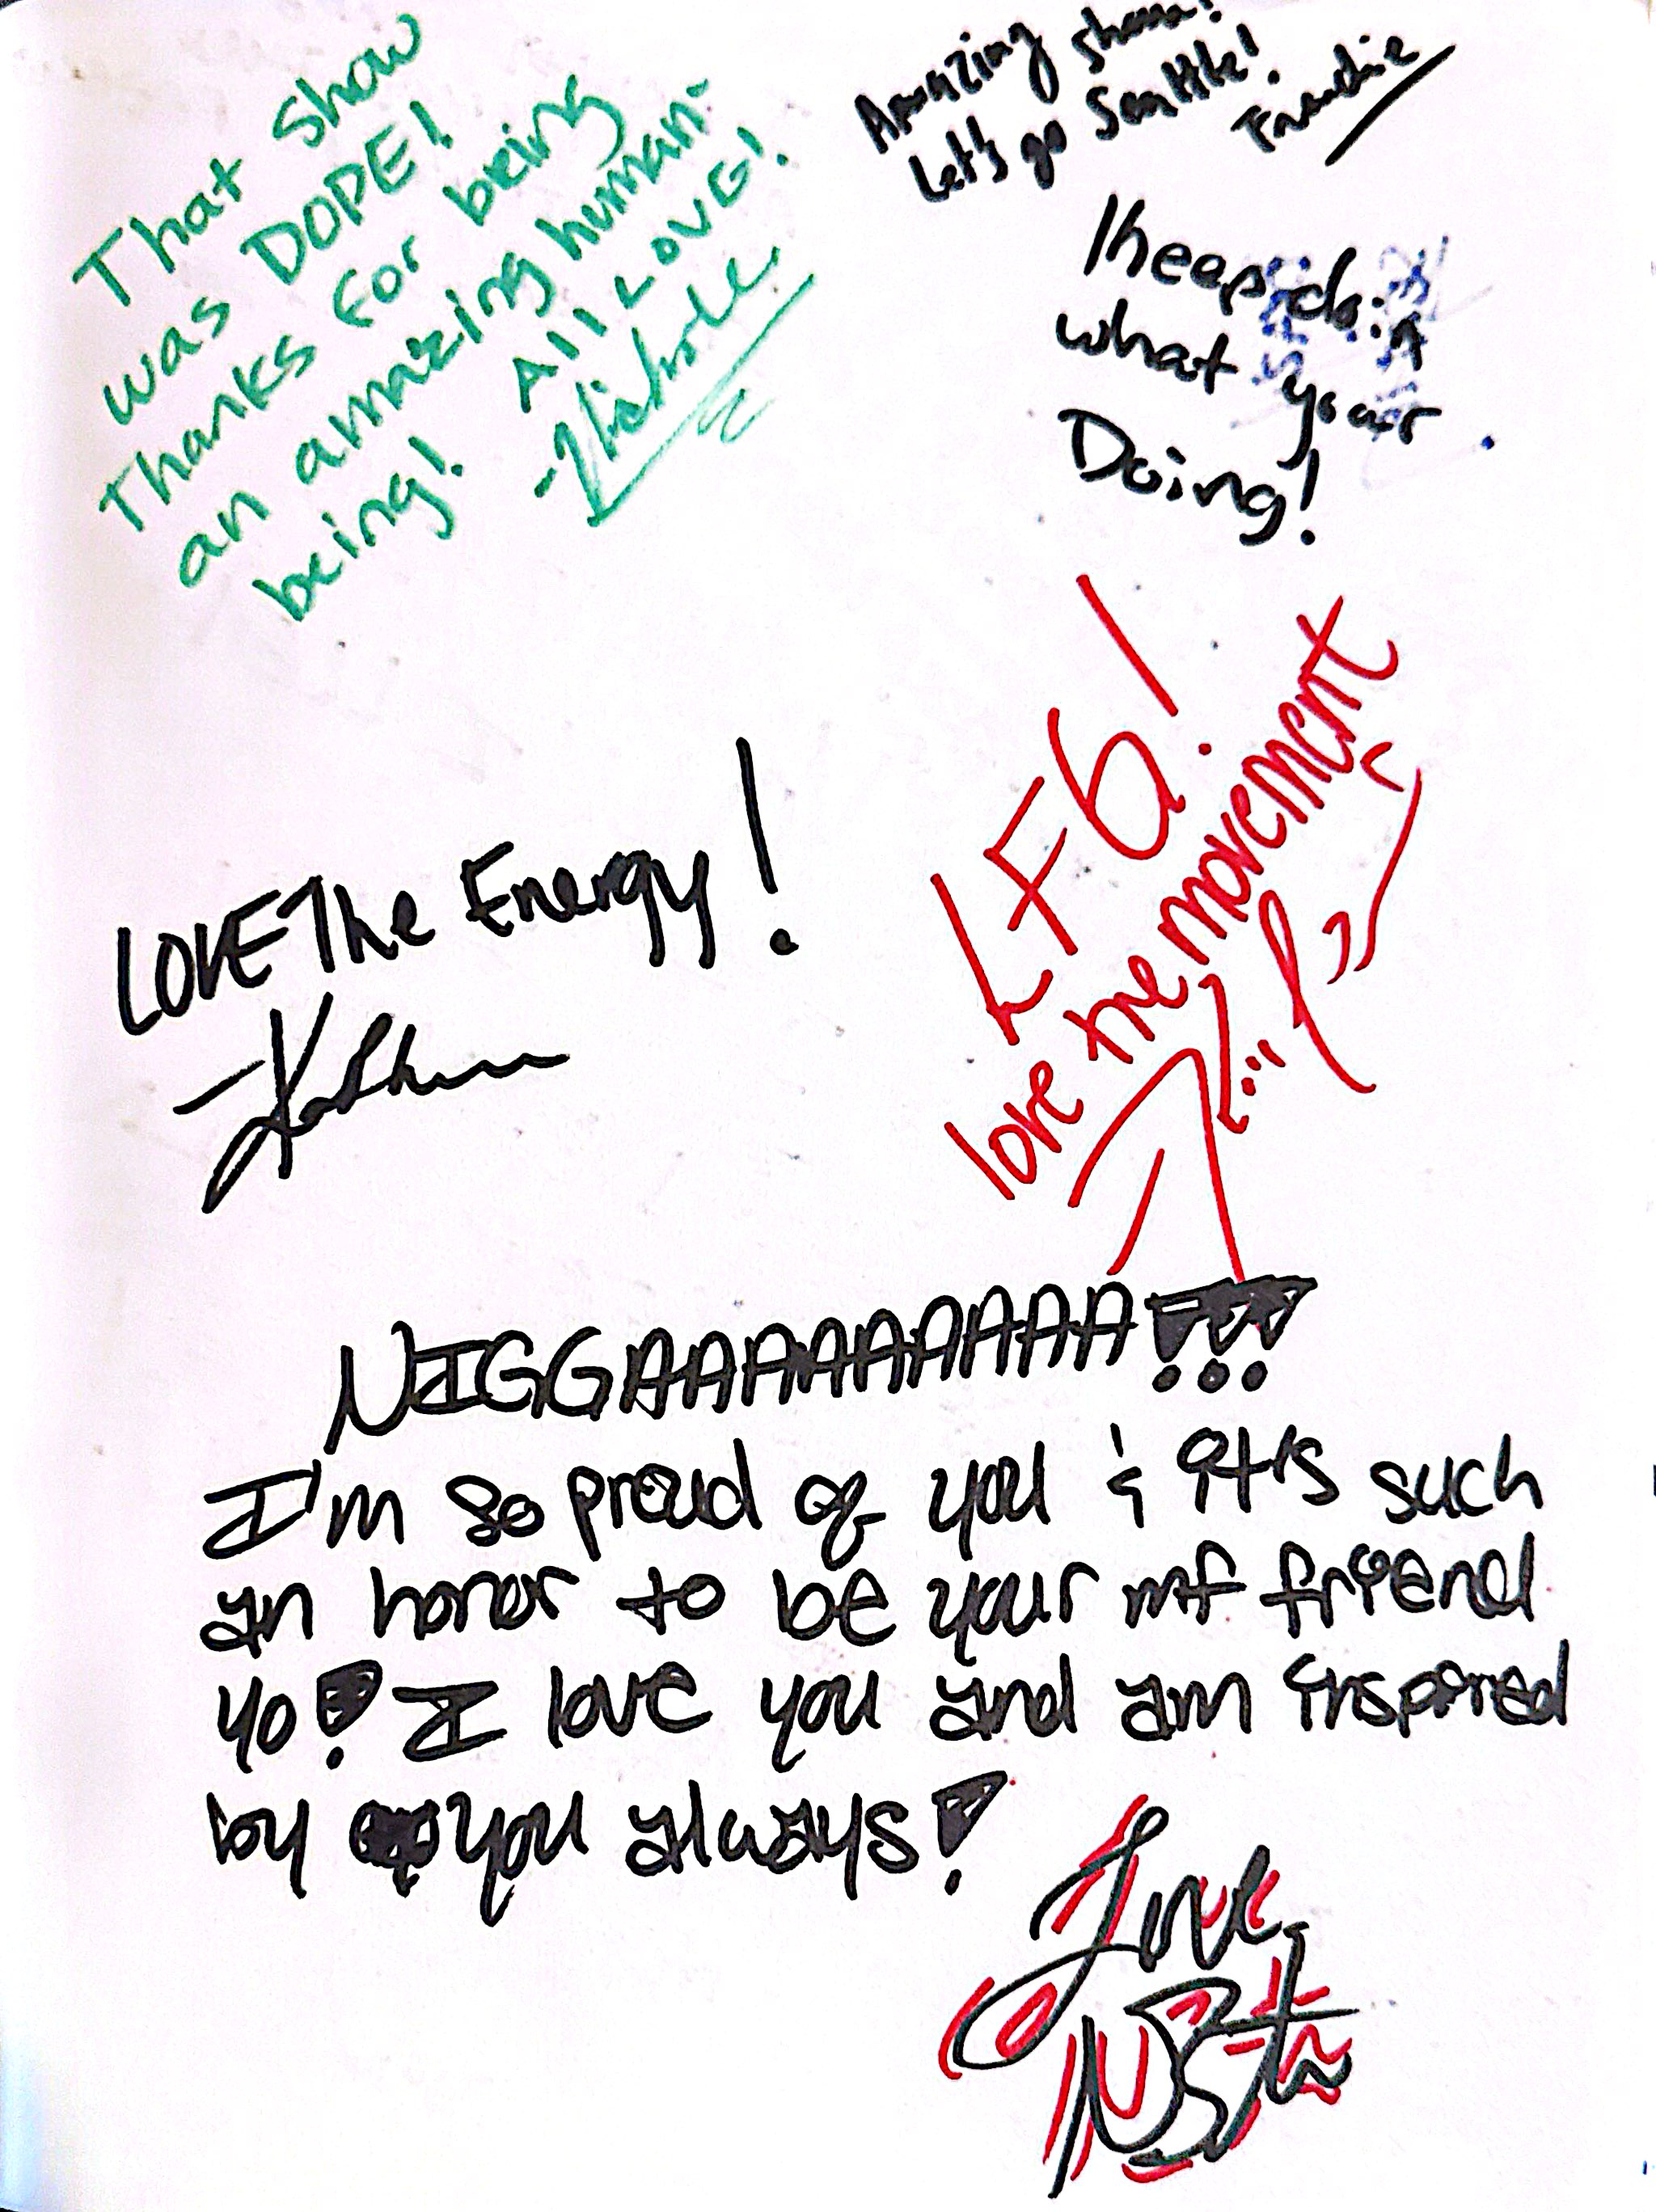 That Show
was DOPE!
Thanks for being
an amazing human
being! All LOVE!
Amazing show!
Let's go Seattle!
Frankie
Keep doin
what your
Doing!
LFG!
love the movement
LOVE The Energy!
NIGGAAAAAAAAAA!!!
I'm so proud of you & it's such
an honor to be your mf friend
yo! I love you and am inspired
by you always!
Love,